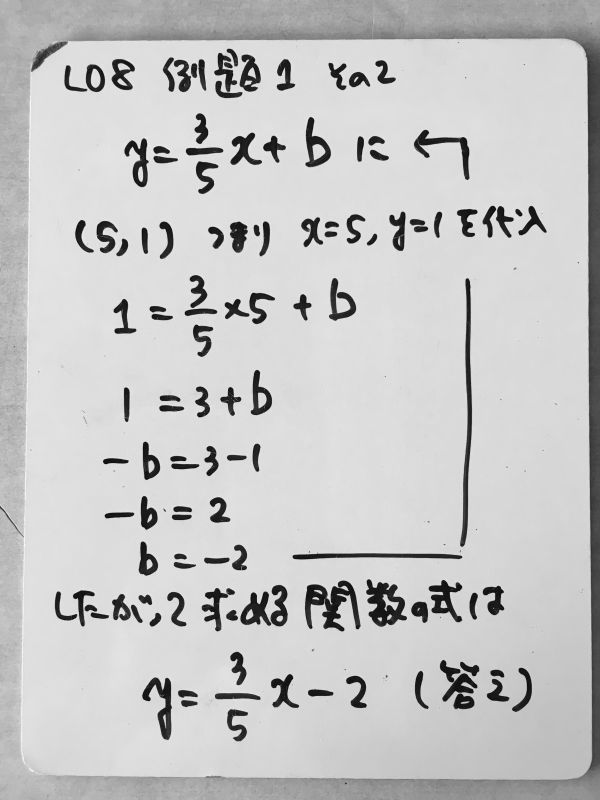 L08 例題1 その2
y=3/5x+b に ←
(5,1) つまり x=5, y=1 を代入
1=3/5×5+b
1=3+b
-b=3-1
-b=2
b=-2
したがって求める関数の式は
y=3/5x-2 (答え)